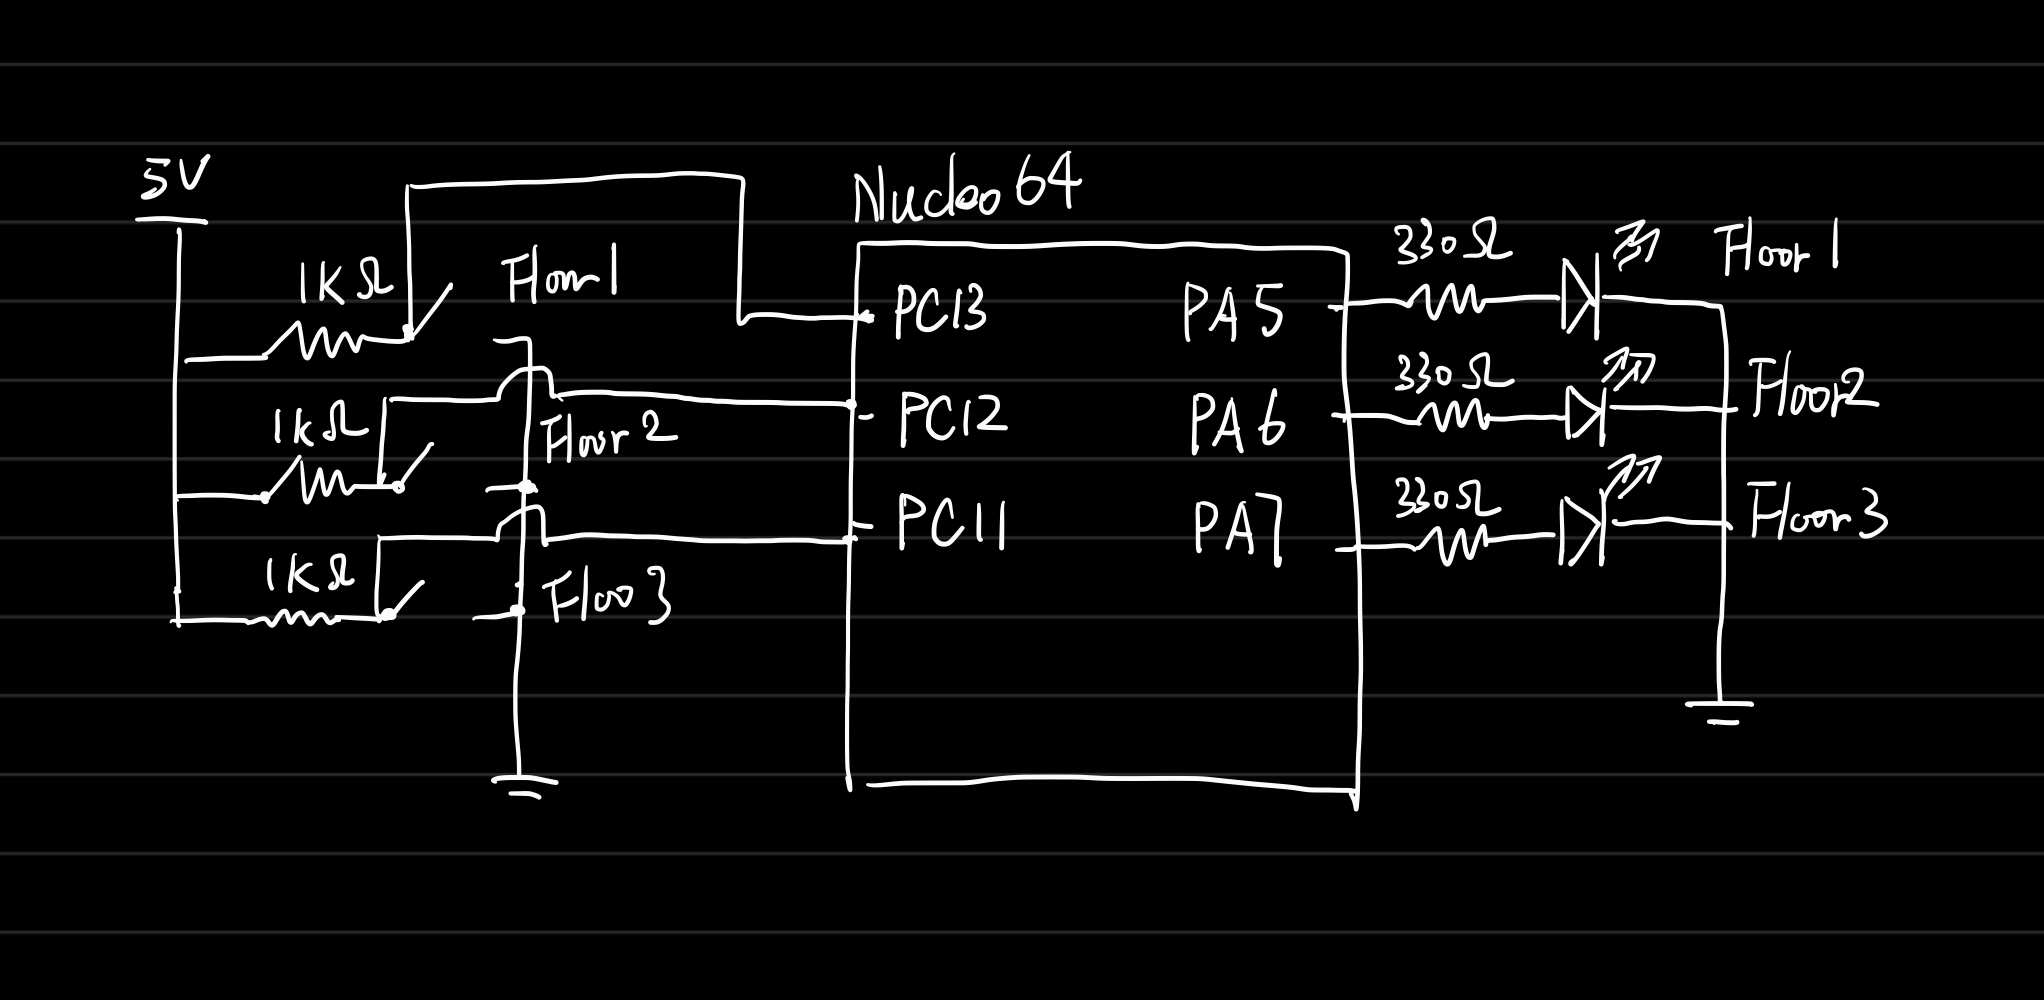 5V
1KΩ
Floor 1
1KΩ
Floor 2
1KΩ
Floo 3
Nucleo 64
PC13
PC12
PC11
PA5
PA6
PA7
330Ω
Floor 1
330Ω
Floor2
330Ω
Floor3